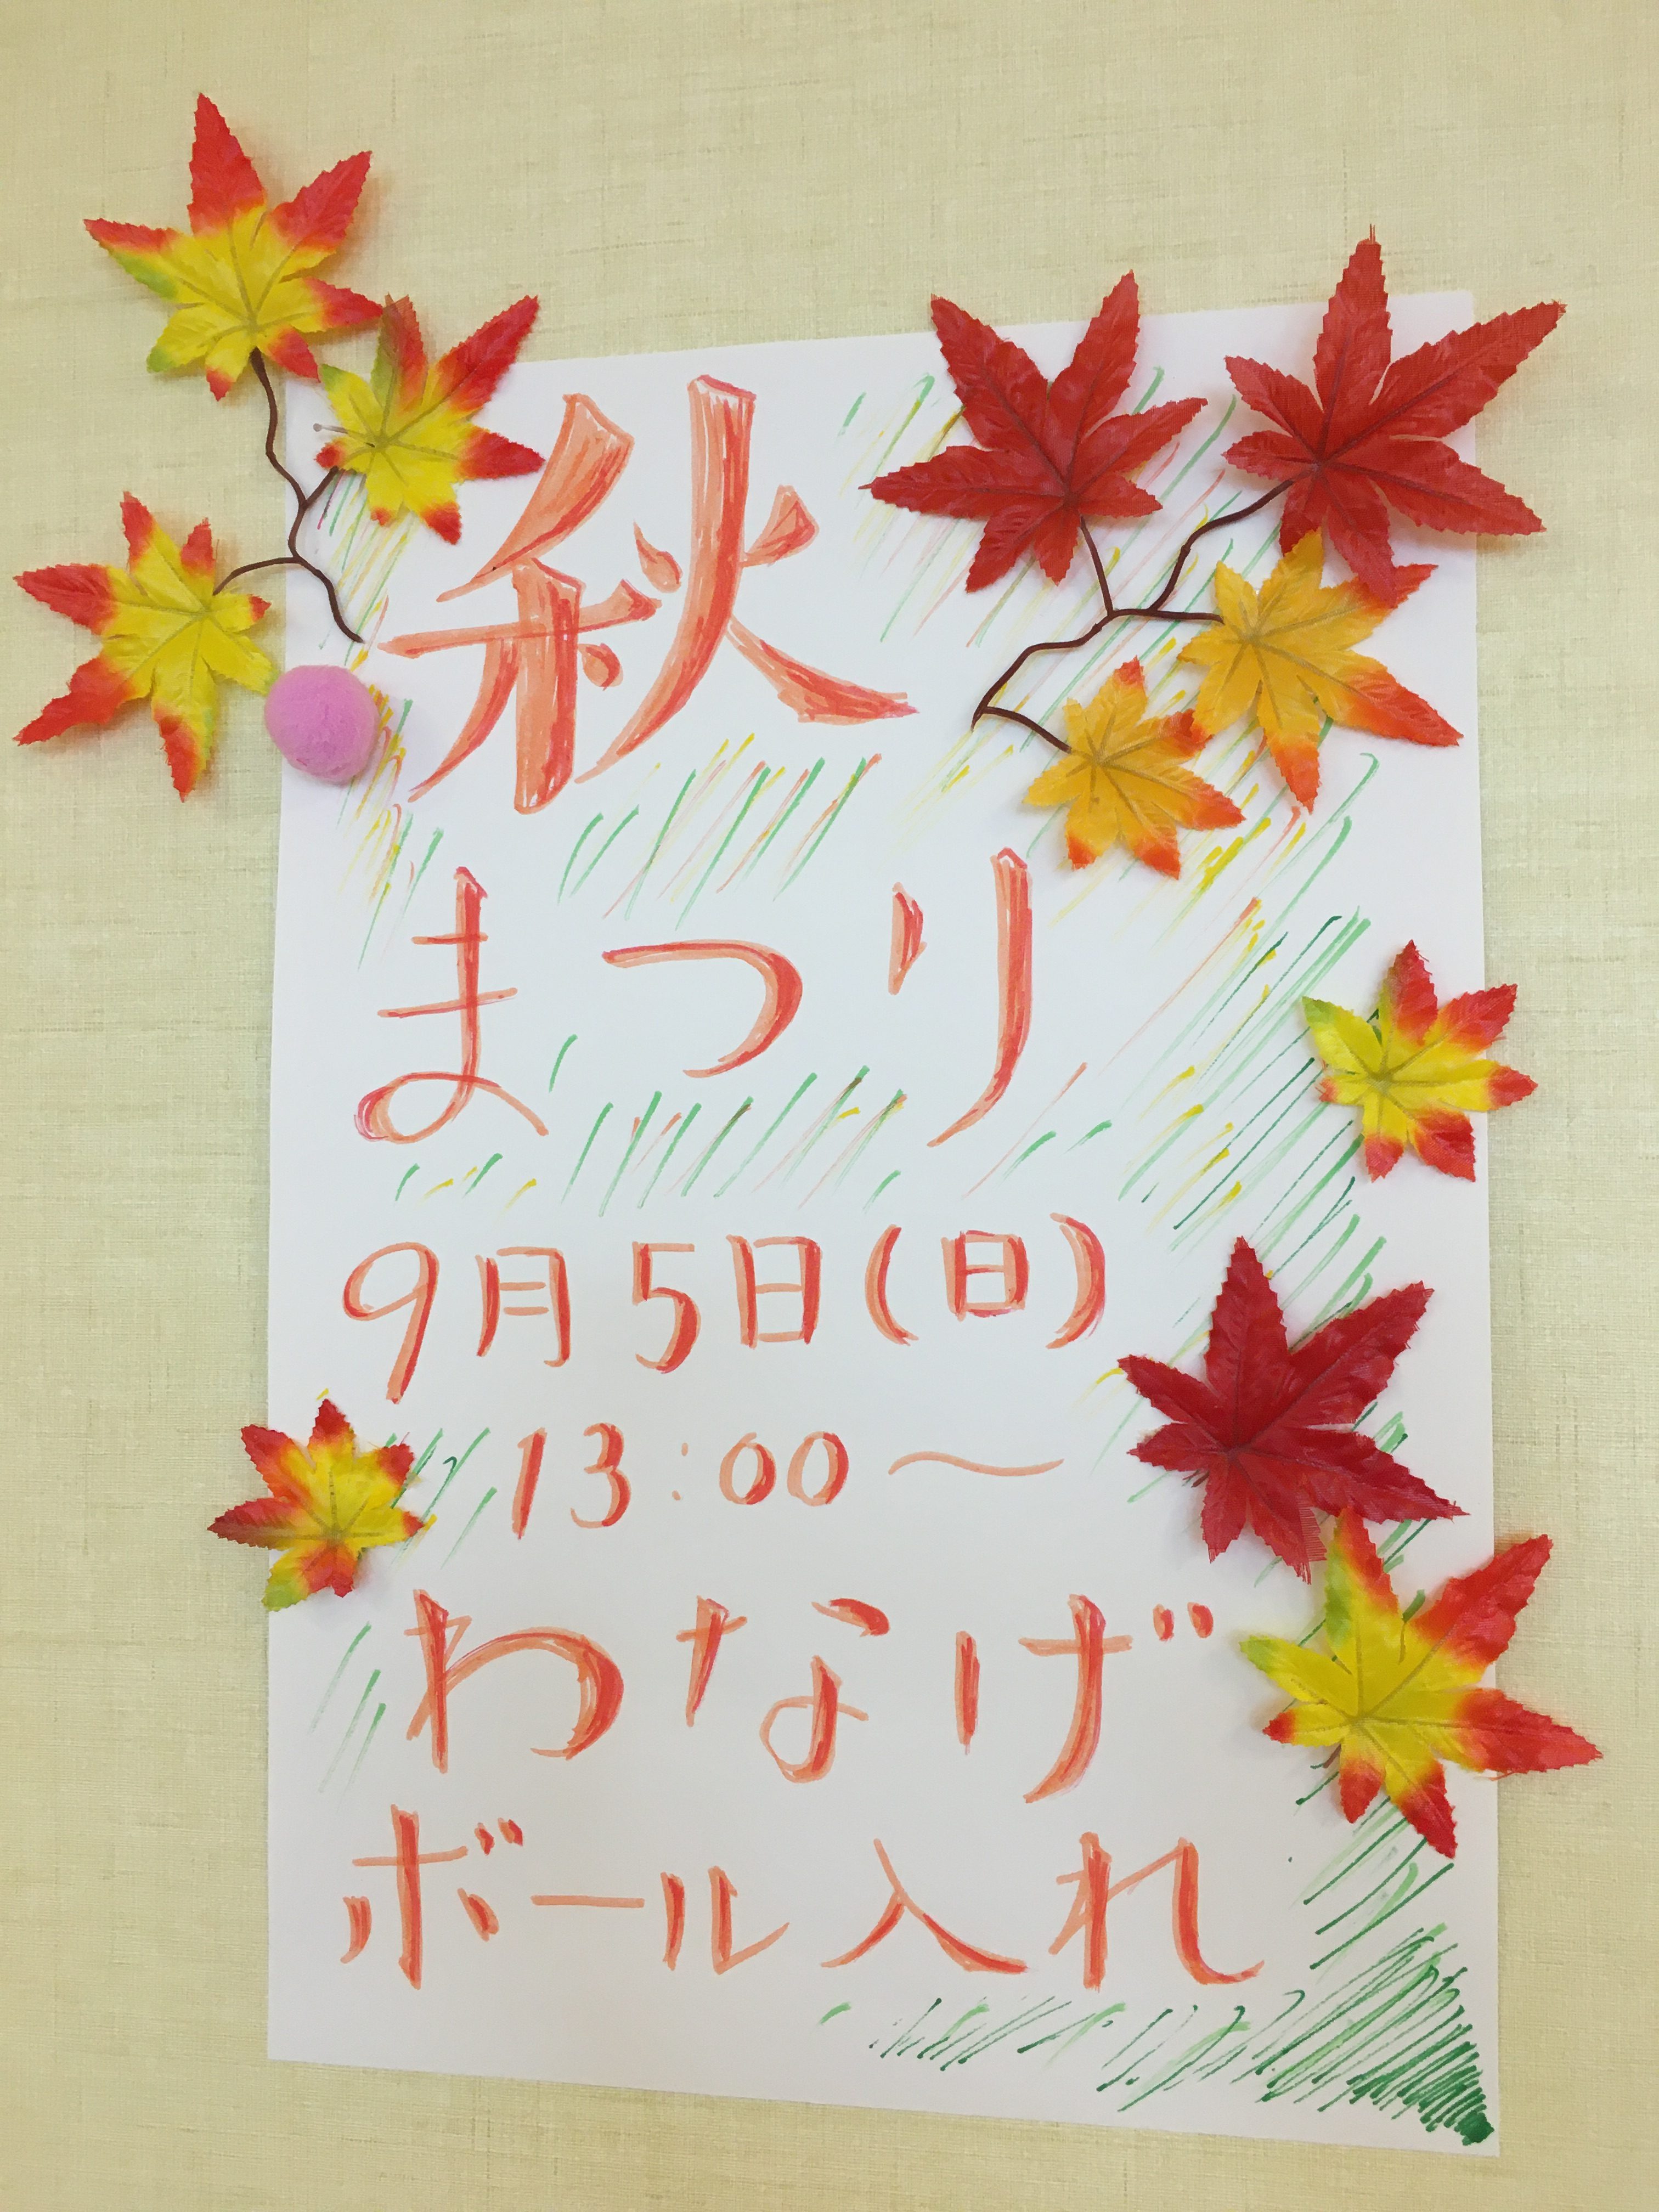 秋
まつり
9月5日(日)
13:00〜
わなげ
ボール入れ